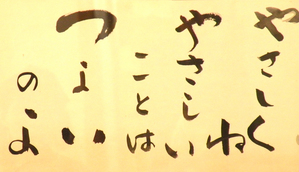 やさしくね
やさしい
ことは
つよい
のよ